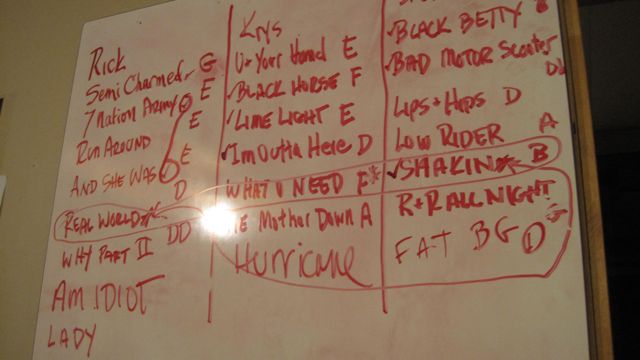 RICK
SEMI CHARMED G
7 NATION ARMY E
RUN AROUND E
AND SHE WAS E
REAL WORLD D
WHY PART II DD
AM.IDIOT
LADY
KRYS
U+YOUR HAND E
✓BLACK HORSE F
✓LIME LIGHT E
✓IM OUTTA HERE D
WHAT U NEED F*
MOTHER DOWN A
HURRICANE
✓BLACK BETTY
✓BAD MOTOR SCOOTER
LIPS + HIPS D
LOW RIDER A
✓SHAKIN* B
R+R ALL NIGHT
FAT BG D